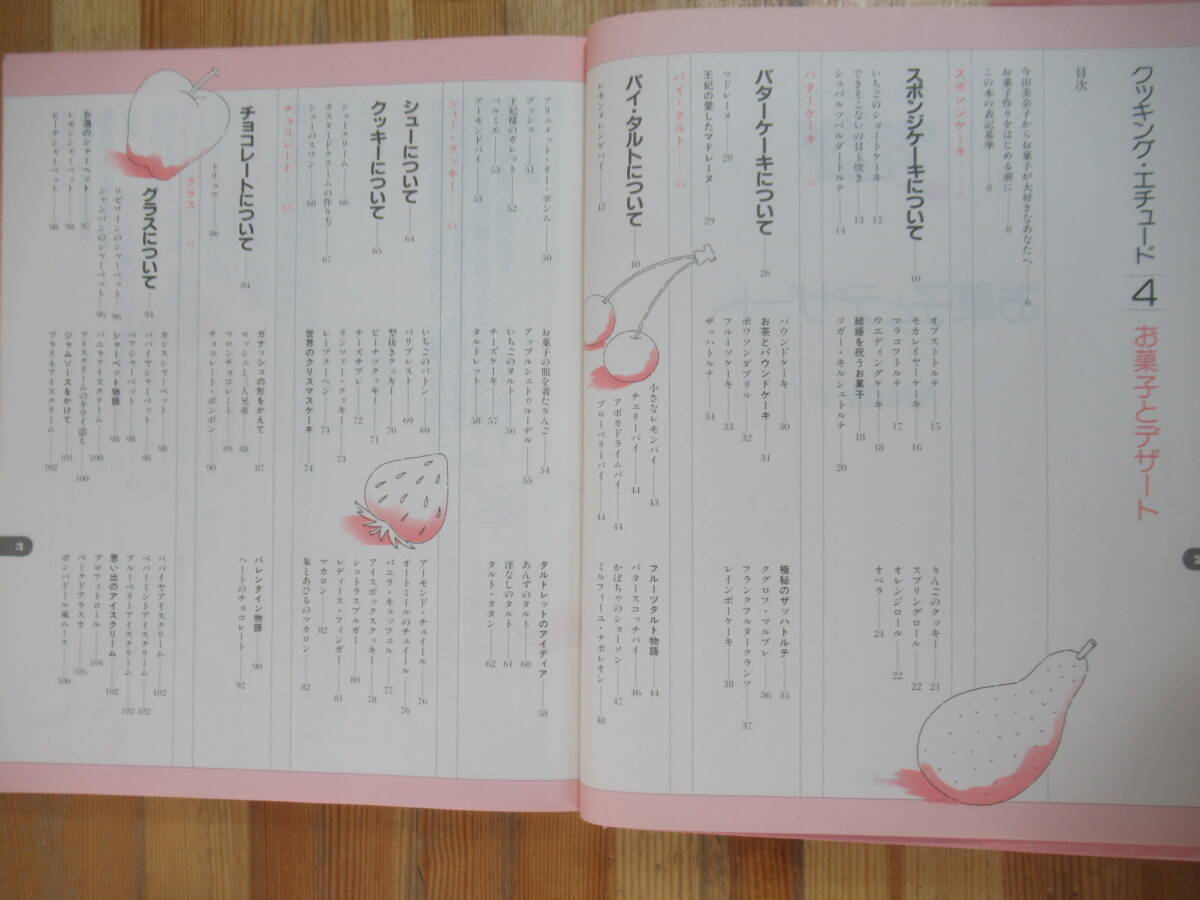 クッキング・エチュード 4 お菓子とデザート
目次
今田美奈子からお菓子が大好きなあなたへ 6
お菓子作りをはじめる前に 8
この本の表記基準 8
スポンジケーキ 9
スポンジケーキについて 10
いちごのショートケーキ 12
できそこないの目玉焼き 13
シュバルツベルダートルテ 14
オブストトルテ 15
モカレイヤーケーキ 16
マラコフトルテ 17
ウエディングケーキ 18
結婚を祝うお菓子 18
ツガー・キルシュトルテ 20
りんごのクッキー 21
スプリングロール 22
オレンジロール 22
オペラ 24
バターケーキ 25
バターケーキについて 26
マドレーヌ 28
王妃の愛したマドレーヌ 29
パウンドケーキ 30
お茶とパウンドケーキ 31
ポワソンダブリル 32
フルーツケーキ 33
ザッハトルテ 34
極秘のザッハトルテ 35
クグロフ・マルブレ 36
フランクフルタークランツ 37
レインボーケーキ 38
パイ・タルト 39
パイ・タルトについて 40
レモンメレンゲパイ 42
小さなレモンパイ 43
チェリーパイ 44
アボカドライムパイ 44
ブルーベリーパイ 44
フルーツタルト物語 44
バタースコッチパイ 46
かぼちゃのショーソン 47
ミルフィーユ・ナポレオン 48
アリュメット・オー・ポンム 50
ブッシェ 51
王妃様のガレット 52
パルミエ 53
アーモンドパイ 53
お菓子の服を着たりんご 54
アップルシュトゥルーデル 55
いちごのタルト 56
チーズケーキ 57
タルトレット 58
タルトレットのアイディア 58
あんずのタルト 60
洋なしのタルト 61
タルト・タタン 62
シュー・クッキー 63
シューについて 64
クッキーについて 65
シュークリーム 66
カスタードクリームの作り方 67
シューのスワン 68
いちごのバトン 69
パリブレスト 69
型抜きクッキー 70
ピーナツクッキー 71
チーズサブレ 72
リンツァー・クッキー 73
レープクーヘン 74
世界のクリスマスケーキ 74
アーモンド・チュイール 76
オートミールのチュイール 76
バニラ・キュッフェル 77
アイスボックスクッキー 78
シュトラスブルガー 80
レディース・フィンガー 81
マカロン 82
象とあひるのマカロン 82
チョコレート 83
チョコレートについて 84
トリュフ 86
ガナッシュの形をかえて 87
ロッシェと三人兄弟 88
マロンチョコレート 89
チョコレート・ボンボン 90
バレンタイン物語 90
ハートのチョコレート 92
グラス 93
グラスについて 94
ロゼワインのシャーベット 96
シャンパンのシャーベット 96
お酒のシャーベット 97
レモンシャーベット 98
ピーチシャーベット 98
カシスシャーベット 98
パパイヤシャーベット 98
ペアシャーベット 98
シャーベット物語 98
バニラアイスクリーム 100
アイスクリームのキウイ添え 100
ジャムソースをかけて 101
プラリネアイスクリーム 102
パパイヤアイスクリーム 102
ペパーミントアイスクリーム 102
ブルーベリーアイスクリーム 102
思い出のアイスクリーム 102
プロフィトロール 104
ベークドアラスカ 105
ポンパドール風ムース 106
2
3